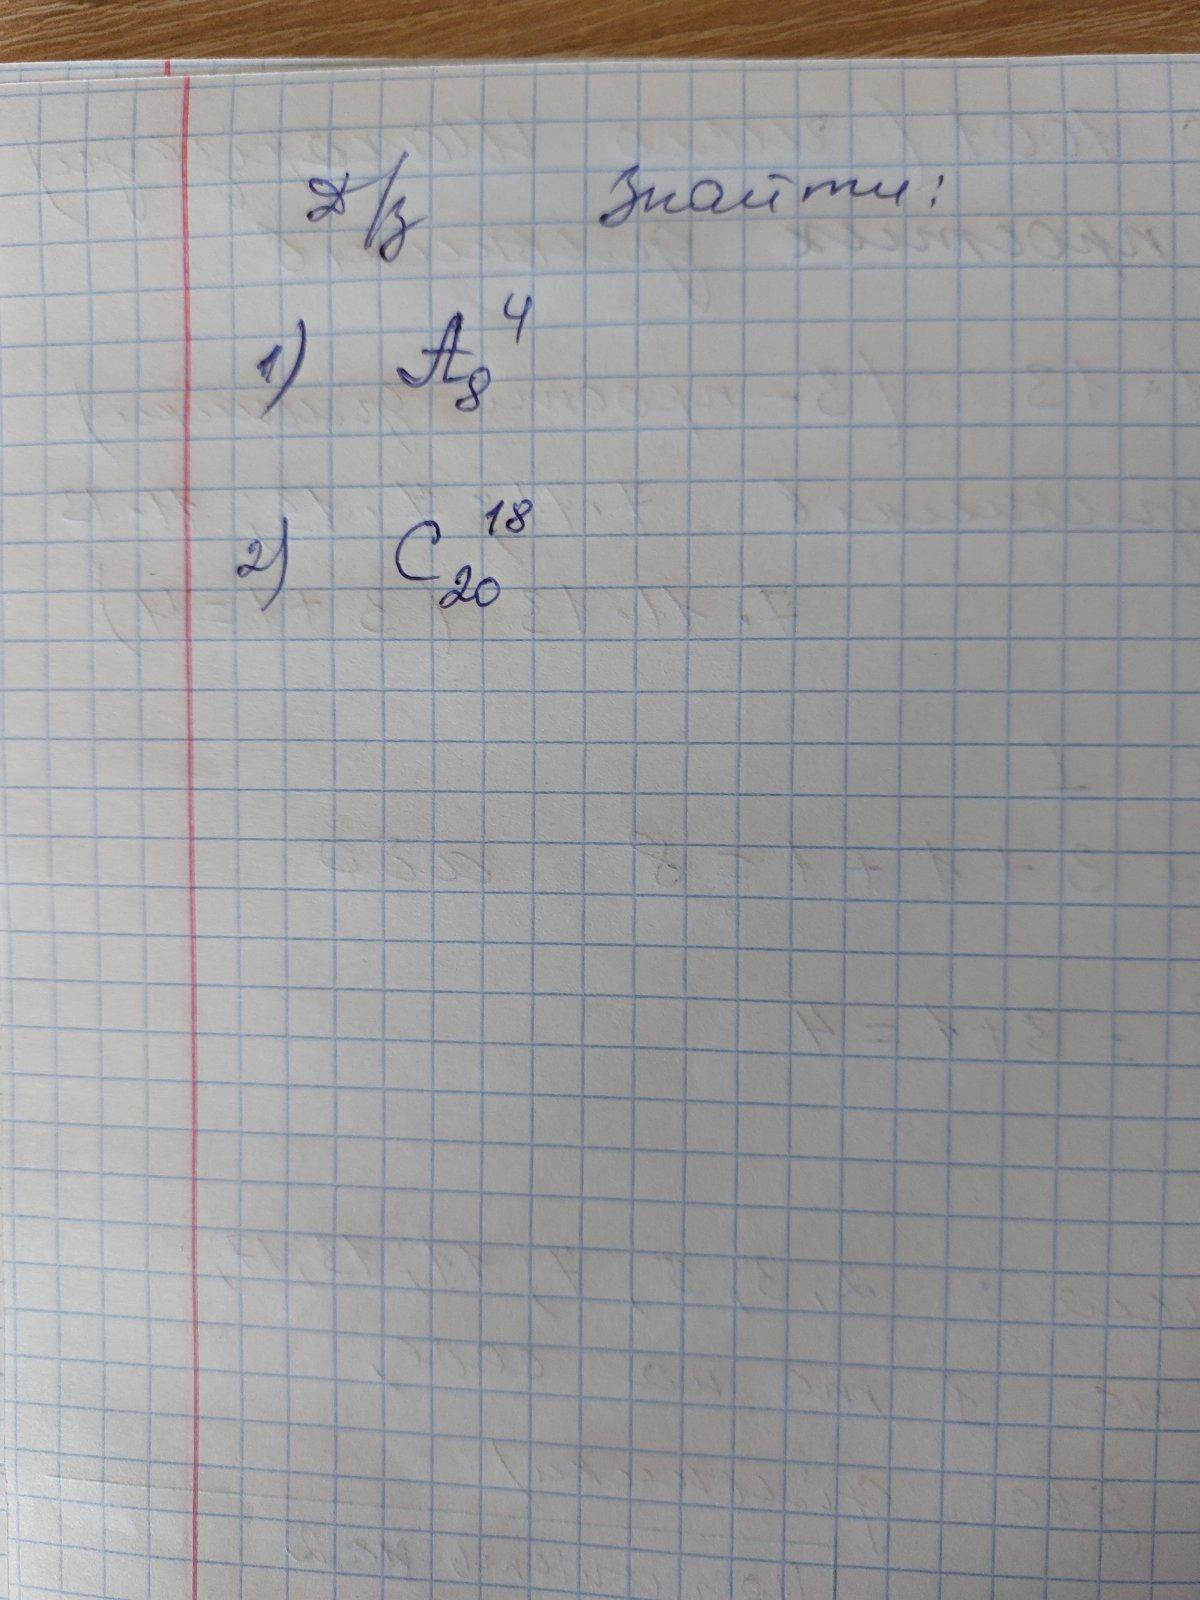 Д/з Знайти:
1) A₈⁴
2) C₂₀¹⁸